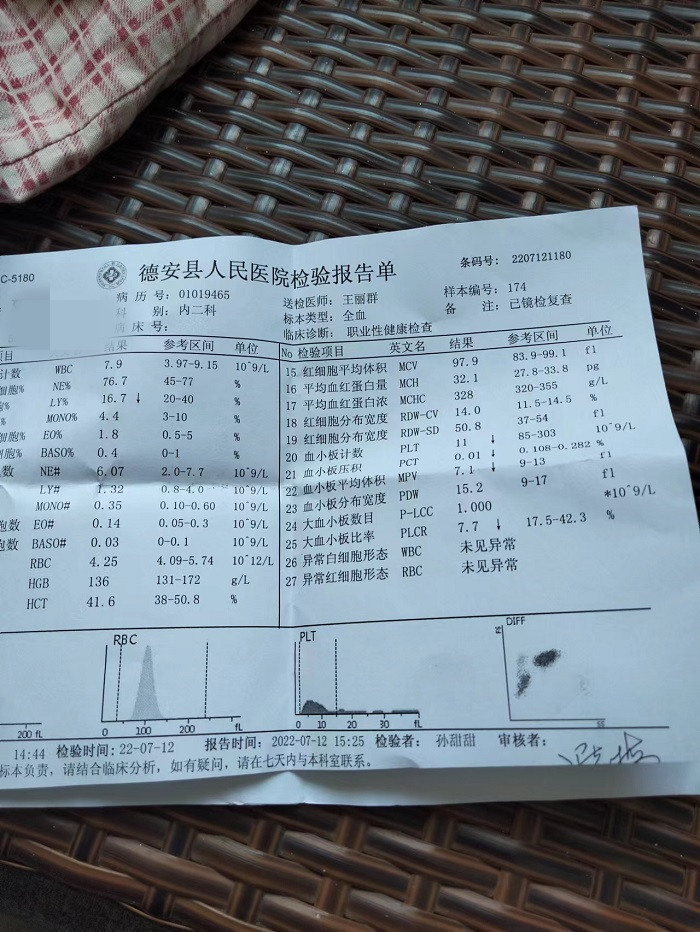 C-5180
德安县人民医院检验报告单
条码号: 2207121180
病 历 号: 01019465
送检医师: 王丽群
样本编号: 174
科 别: 内二科
标本类型: 全血
备 注: 已镜检复查
病 床 号:
临床诊断: 职业性健康检查
项目 结果 参考区间 单位
计数 WBC 7.9 3.97-9.15 10^9/L
细胞% NE% 76.7 45-77 %
胞% LY% 16.7 ↓ 20-40 %
MONO% 4.4 3-10 %
细胞% EO% 1.8 0.5-5 %
胞% BASO% 0.4 0-1 %
数 NE# 6.07 2.0-7.7 10^9/L
LY# 1.32 0.8-4.0 10^9/L
MONO# 0.35 0.10-0.60 10^9/L
胞数 EO# 0.14 0.05-0.3 10^9/L
胞数 BASO# 0.03 0-0.1 10^9/L
RBC 4.25 4.09-5.74 10^12/L
HGB 136 131-172 g/L
HCT 41.6 38-50.8 %
No 检验项目 英文名 结果 参考区间 单位
15 红细胞平均体积 MCV 97.9 83.9-99.1 fl
16 平均血红蛋白量 MCH 32.1 27.8-33.8 pg
17 平均血红蛋白浓 MCHC 328 320-355 g/L
18 红细胞分布宽度 RDW-CV 14.0 11.5-14.5 %
19 红细胞分布宽度 RDW-SD 50.8 37-54 fl
20 血小板计数 PLT 11 ↓ 85-303 10^9/L
21 血小板压积 PCT 0.01 ↓ 0.108-0.282 %
22 血小板平均体积 MPV 7.1 ↓ 9-13 fl
23 血小板分布宽度 PDW 15.2 9-17 fl
24 大血小板数目 P-LCC 1.000 *10^9/L
25 大血小板比率 PLCR 7.7 ↓ 17.5-42.3 %
26 异常白细胞形态 WBC 未见异常
27 异常红细胞形态 RBC 未见异常
200 fL
RBC
0 100 fL
PLT
0 10 20 30 fL
DIFF
14:44 检验时间: 22-07-12 报告时间: 2022-07-12 15:25 检验者: 孙甜甜 审核者:
标本负责，请结合临床分析，如有疑问，请在七天内与本科室联系。